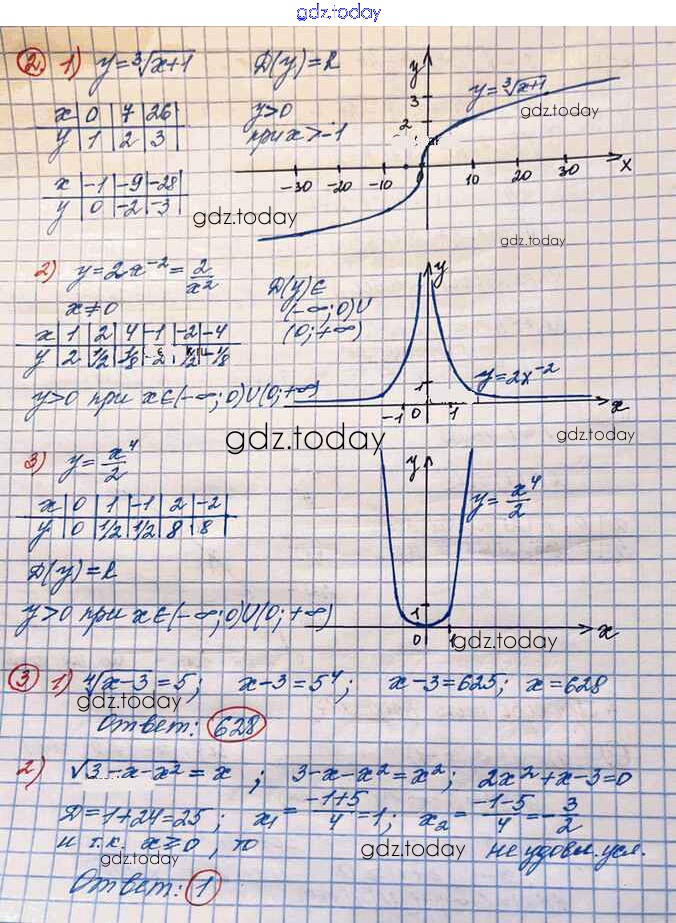 gdz.today
2. 1) y = ∛(x+1) D(y) = R
x | 0 | 7 | 26
y | 1 | 2 | 3
y > 0
при x > -1
x | -1 | -9 | -28
y | 0 | -2 | -3
gdz.today
y
y = ∛(x+1)
gdz.today
3
2
-30 -20 -10 0 10 20 30 x
gdz.today
2) y = 2x⁻² = 2/x²
x ≠ 0
D(y) ∈
(-∞; 0) ∪
(0; +∞)
x | 1 | 2 | 4 | -1 | -2 | -4
y | 2 | 1/2 | 1/8 | -2 | 1/2 | -1/8
y > 0 при x ∈ (-∞; 0) ∪ (0; +∞)
y
y = 2x⁻²
1
-1 0 1 x
gdz.today
gdz.today
3) y = x⁴/2
x | 0 | 1 | -1 | 2 | -2
y | 0 | 1/2 | 1/2 | 8 | 8
D(y) = R
y > 0 при x ∈ (-∞; 0) ∪ (0; +∞)
y
y = x⁴/2
1
0 1 x
gdz.today
3 1) ∜(x-3) = 5; x-3 = 5⁴; x-3 = 625; x = 628
gdz.today
Ответ: 628
2) √(3-x-x²) = x; 3-x-x² = x²; 2x²+x-3=0
D = 1+24 = 25; x₁ = (-1+5)/4 = 1; x₂ = (-1-5)/4 = -3/2
и т.к. x ≥ 0, то не удовл. усл.
gdz.today
gdz.today
Ответ: 1